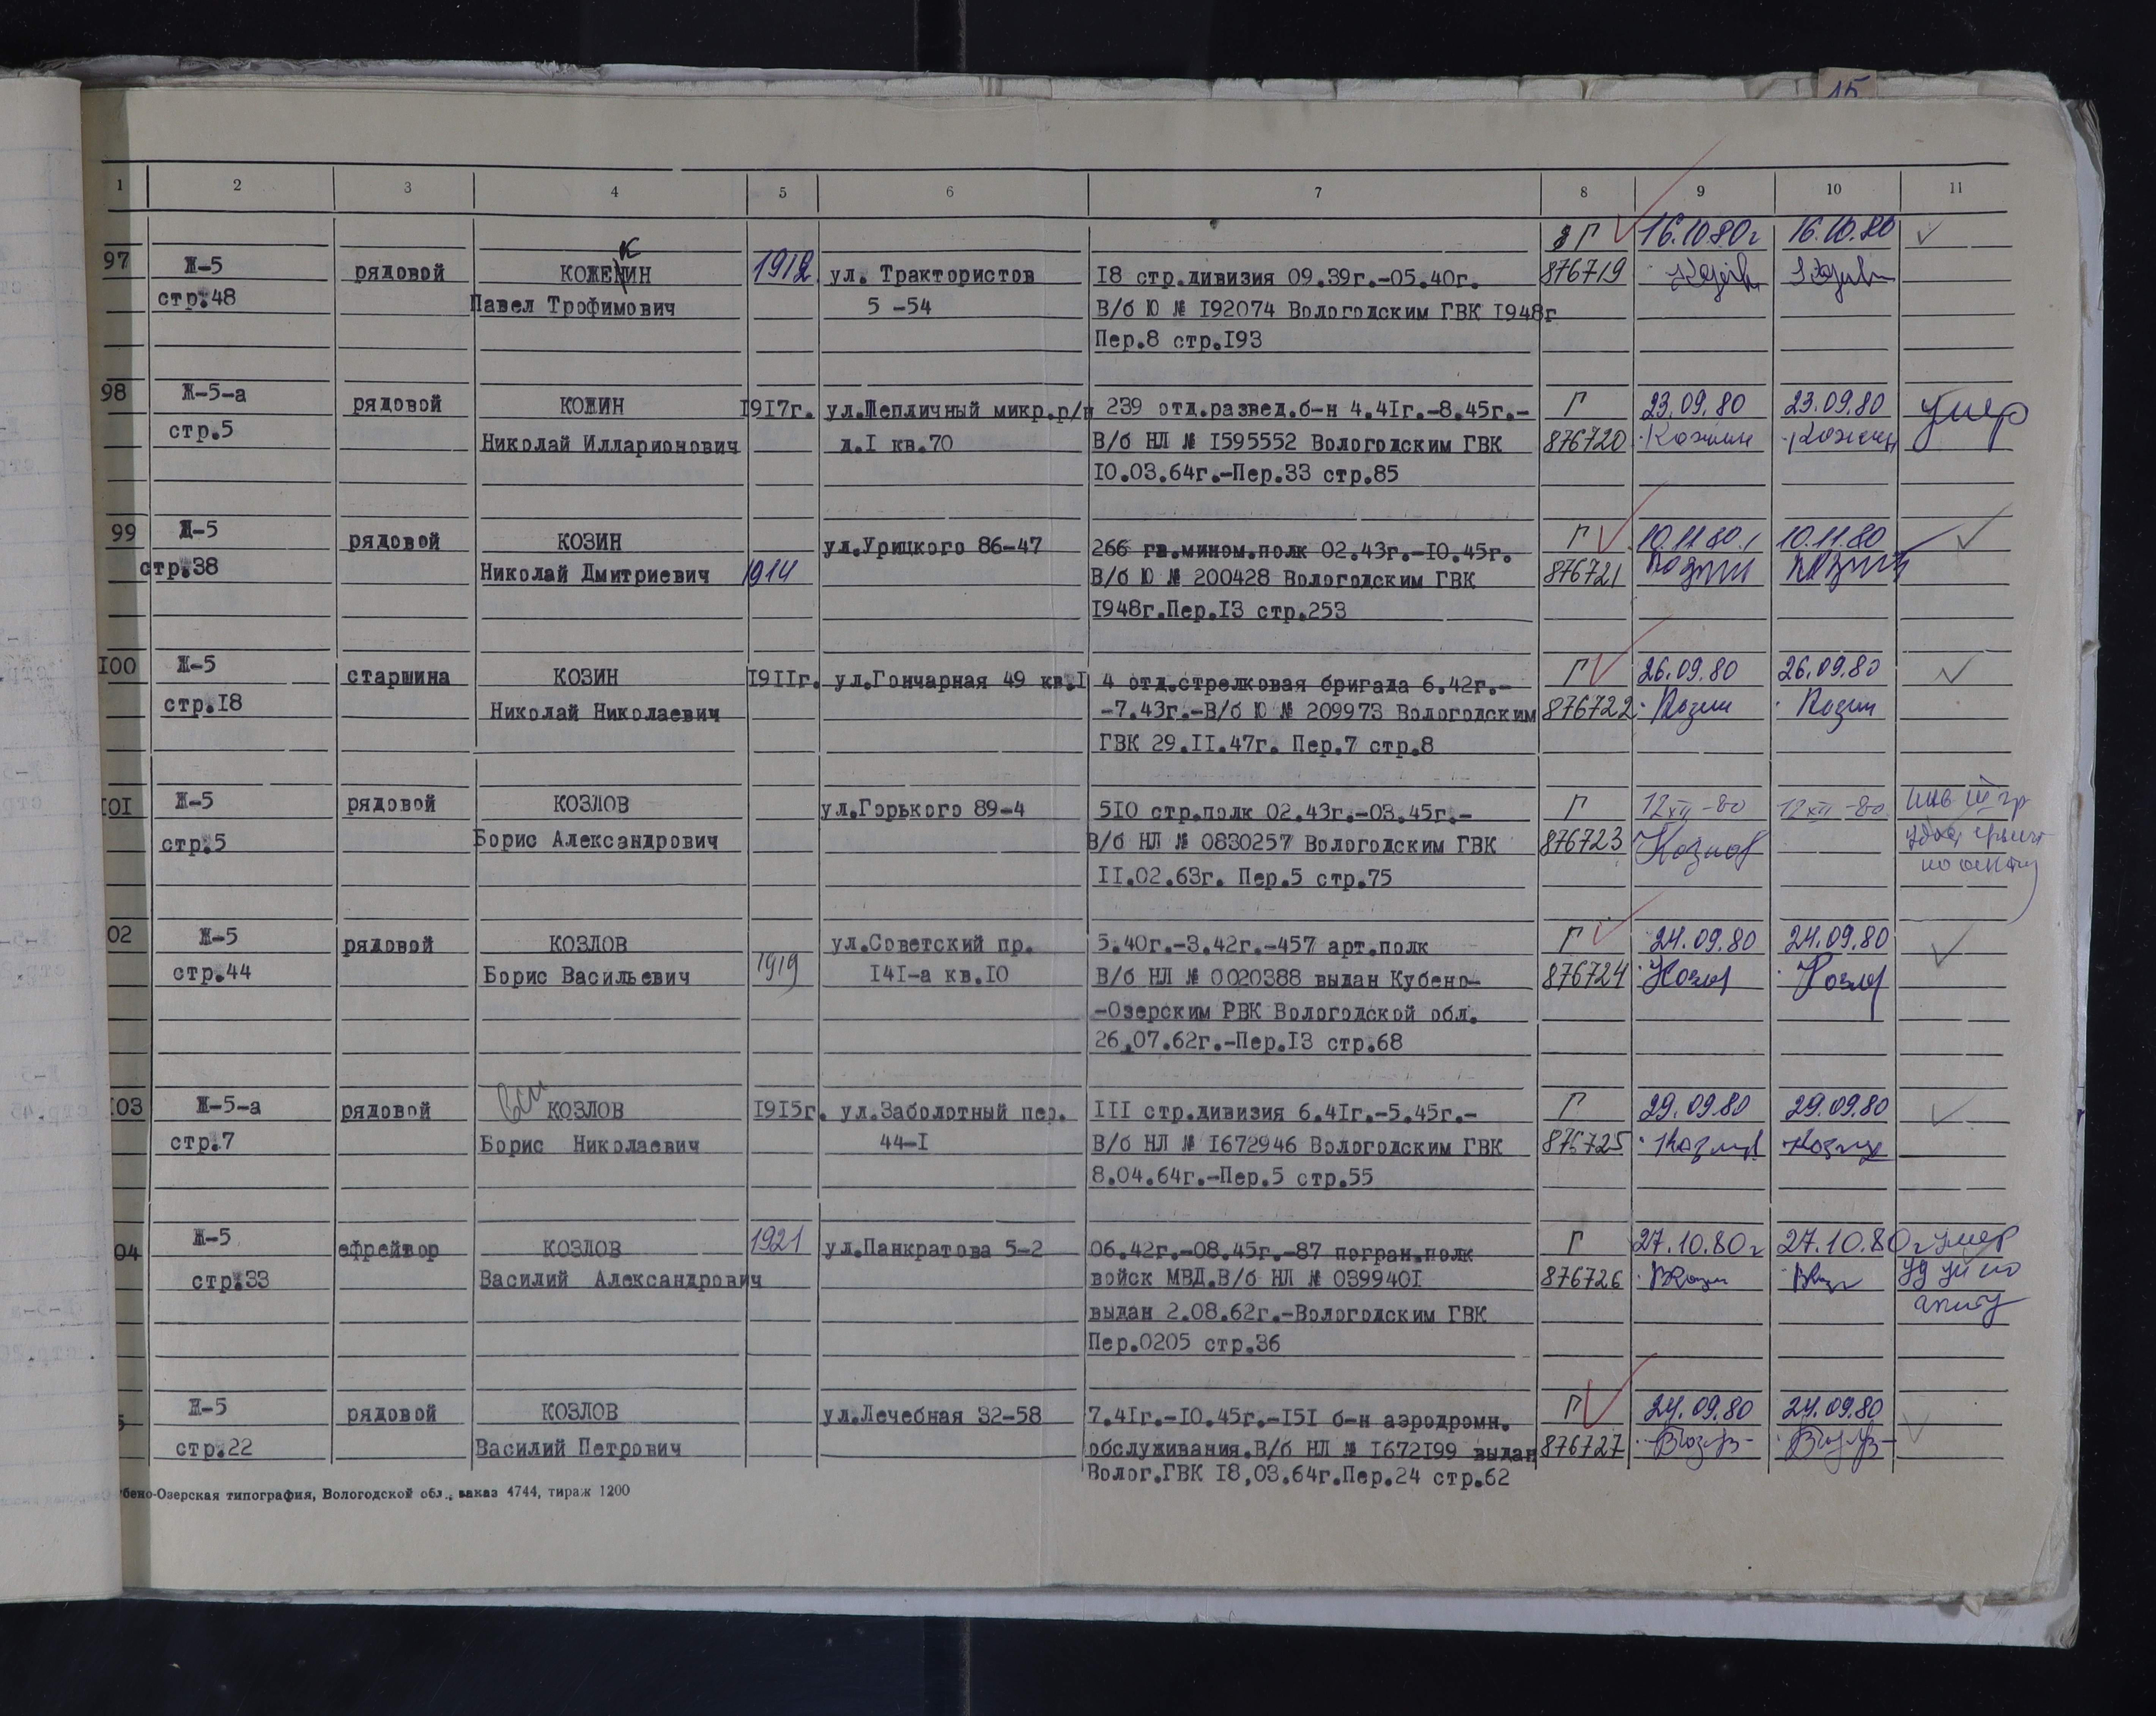 15
1 2 3 4 5 6 7 8 9 10 11
Г 16.10.80г 16.10.80
97 Ж-5 рядовой КОЖЕКИН 1912 ул. Трактористов 18 стр.дивизия 09.39г.-05.40г. 876719
стр.48 Павел Трофимович 5 -54 В/б Ю № 192074 Вологодским ГВК 1948г
Пер.8 стр.193
98 Ж-5-а рядовой КОЖИН 1917г. ул.Тепличный микр.р/н 239 отд.развед.б-н 4.41г.-8.45г.- Г 23.09.80 23.09.80 умер
стр.5 Николай Илларионович д.1 кв.70 В/б НЛ № 1595552 Вологодским ГВК 876720 Кожин Кожин
10.03.64г.-Пер.33 стр.85
99 Ж-5 рядовой КОЗИН ул.Урицкого 86-47 266 гв.мином.полк 02.43г.-10.45г. Г 10.11.80 10.11.80
стр.38 Николай Дмитриевич 1914 В/б Ю № 200428 Вологодским ГВК 876721 Козин Козин
1948г.Пер.13 стр.253
100 Ж-5 старшина КОЗИН 1911г. ул.Гончарная 49 кв.1 4 отд.стрелковая бригада 6.42г.- Г 26.09.80 26.09.80
стр.18 Николай Николаевич -7.43г.-В/б Ю № 209973 Вологодским 876722 Козин Козин
ГВК 29.11.47г. Пер.7 стр.8
101 Ж-5 рядовой КОЗЛОВ ул.Горького 89-4 510 стр.полк 02.43г.-03.45г.- Г 12 XII -80 12 XII -80 инв III гр
стр.5 Борис Александрович В/б НЛ № 0830257 Вологодским ГВК 876723 Козлов
11.02.63г. Пер.5 стр.75
02 Ж-5 рядовой КОЗЛОВ ул.Советский пр. 5.40г.-3.42г.-457 арт.полк Г 24.09.80 24.09.80
стр.44 Борис Васильевич 1919 141-а кв.10 В/б НЛ № 0020388 выдан Кубено- 876724 Козлов Козлов
-Озерским РВК Вологодской обл.
26.07.62г.-Пер.13 стр.68
103 Ж-5-а рядовой КОЗЛОВ 1915г. ул.Заболотный пер. 111 стр.дивизия 6.41г.-5.45г.- Г 29.09.80 29.09.80
стр.7 Борис Николаевич 44-1 В/б НЛ № 1672946 Вологодским ГВК 876725 Козлов Козлов
8.04.64г.-Пер.5 стр.55
04 Ж-5 ефрейтор КОЗЛОВ 1921 ул.Панкратова 5-2 06.42г.-08.45г.-87 погран.полк Г 27.10.80г 27.10.80г умер
стр.33 Василий Александрович войск МВД.В/б НЛ № 0399401 876726
выдан 2.08.62г.-Вологодским ГВК
Пер.0205 стр.36
5 Ж-5 рядовой КОЗЛОВ ул.Лечебная 32-58 7.41г.-10.45г.-151 б-н аэродромн. Г 24.09.80 24.09.80
стр.22 Василий Петрович обслуживания.В/б НЛ № 1672199 выдан 876727
Волог.ГВК 18,03.64г.Пер.24 стр.62
бено-Озерская типография, Вологодской обл., заказ 4744, тираж 1200